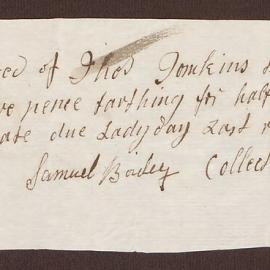 of Thos Tomkins
pence farthing for half
due Ladyday Last
Samuel Bailey Collect